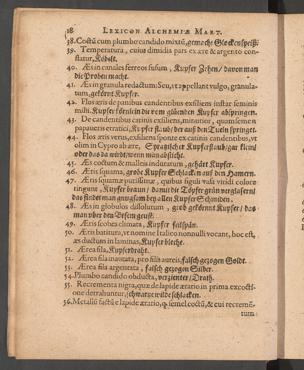 18 LEXICON ALCHEMIÆ MART.
38. Coctū cum plumbo candido mixtū, gemacht Glockenspeiß.
39. Temperatura, cuius dimidia pars ex ære & argento conflatur, Köbolt.
40. Æs in canales ferreos fusum, Kupfer Zehen / davon man
die Proben macht.
41. Æs in granula redactum: Seu, ut appellant vulgo, granulatum, gekörnt Kupfer.
42. Flos æris de panibus candentibus exsiliens instar seminis
milii. Kupfer körnlein die vom glüenden Kupfer abspringen.
43. De candentibus catinis exsiliens, minutior, quam semen
papaueris erratici, Kupfer staub / der auß den Tieln springt.
44. Flos æris verus, exsiliens sponte ex catinis candentibus, ut
olim in Cypro ab ære, Spangrün
45. Æs coctum & malleis induratum, gehärt Kupfer.
46. Æris squama, grobe Kupfer Schlacken auff den Hamern.
47. Æris squamæ
ringunt, Kupfer braun / damit die Töpfer grün verglasern /
das findet man bey allen Kupfer Schmiden.
48. Æs in globulos dissolutum, grob gekörnts Kupfer / das
man uber den Besem geust.
49. Æris scobes elimata, Kupfer feilspän.
50. Æris batitura, vt nomine Italico nonnulli vocant, hoc est,
æs ductum in laminas, Kupfer bleche.
51. Ærea fila, Kupferdraht.
52. Ærea fila inaurata, pro filis aureis, falsch gezogen Goldt.
53. Ærea fila argentata, falsch gezogen Silber.
54. Plumbo candido obducta, verzienter / Dratt.
55. Recrementa nigra, quæ de lapide ærario in prima excoctione detrahuntur, schwartze wilde schlacken.
56. Metallū factū e lapide ærario, semel coctū, & cui recremētum